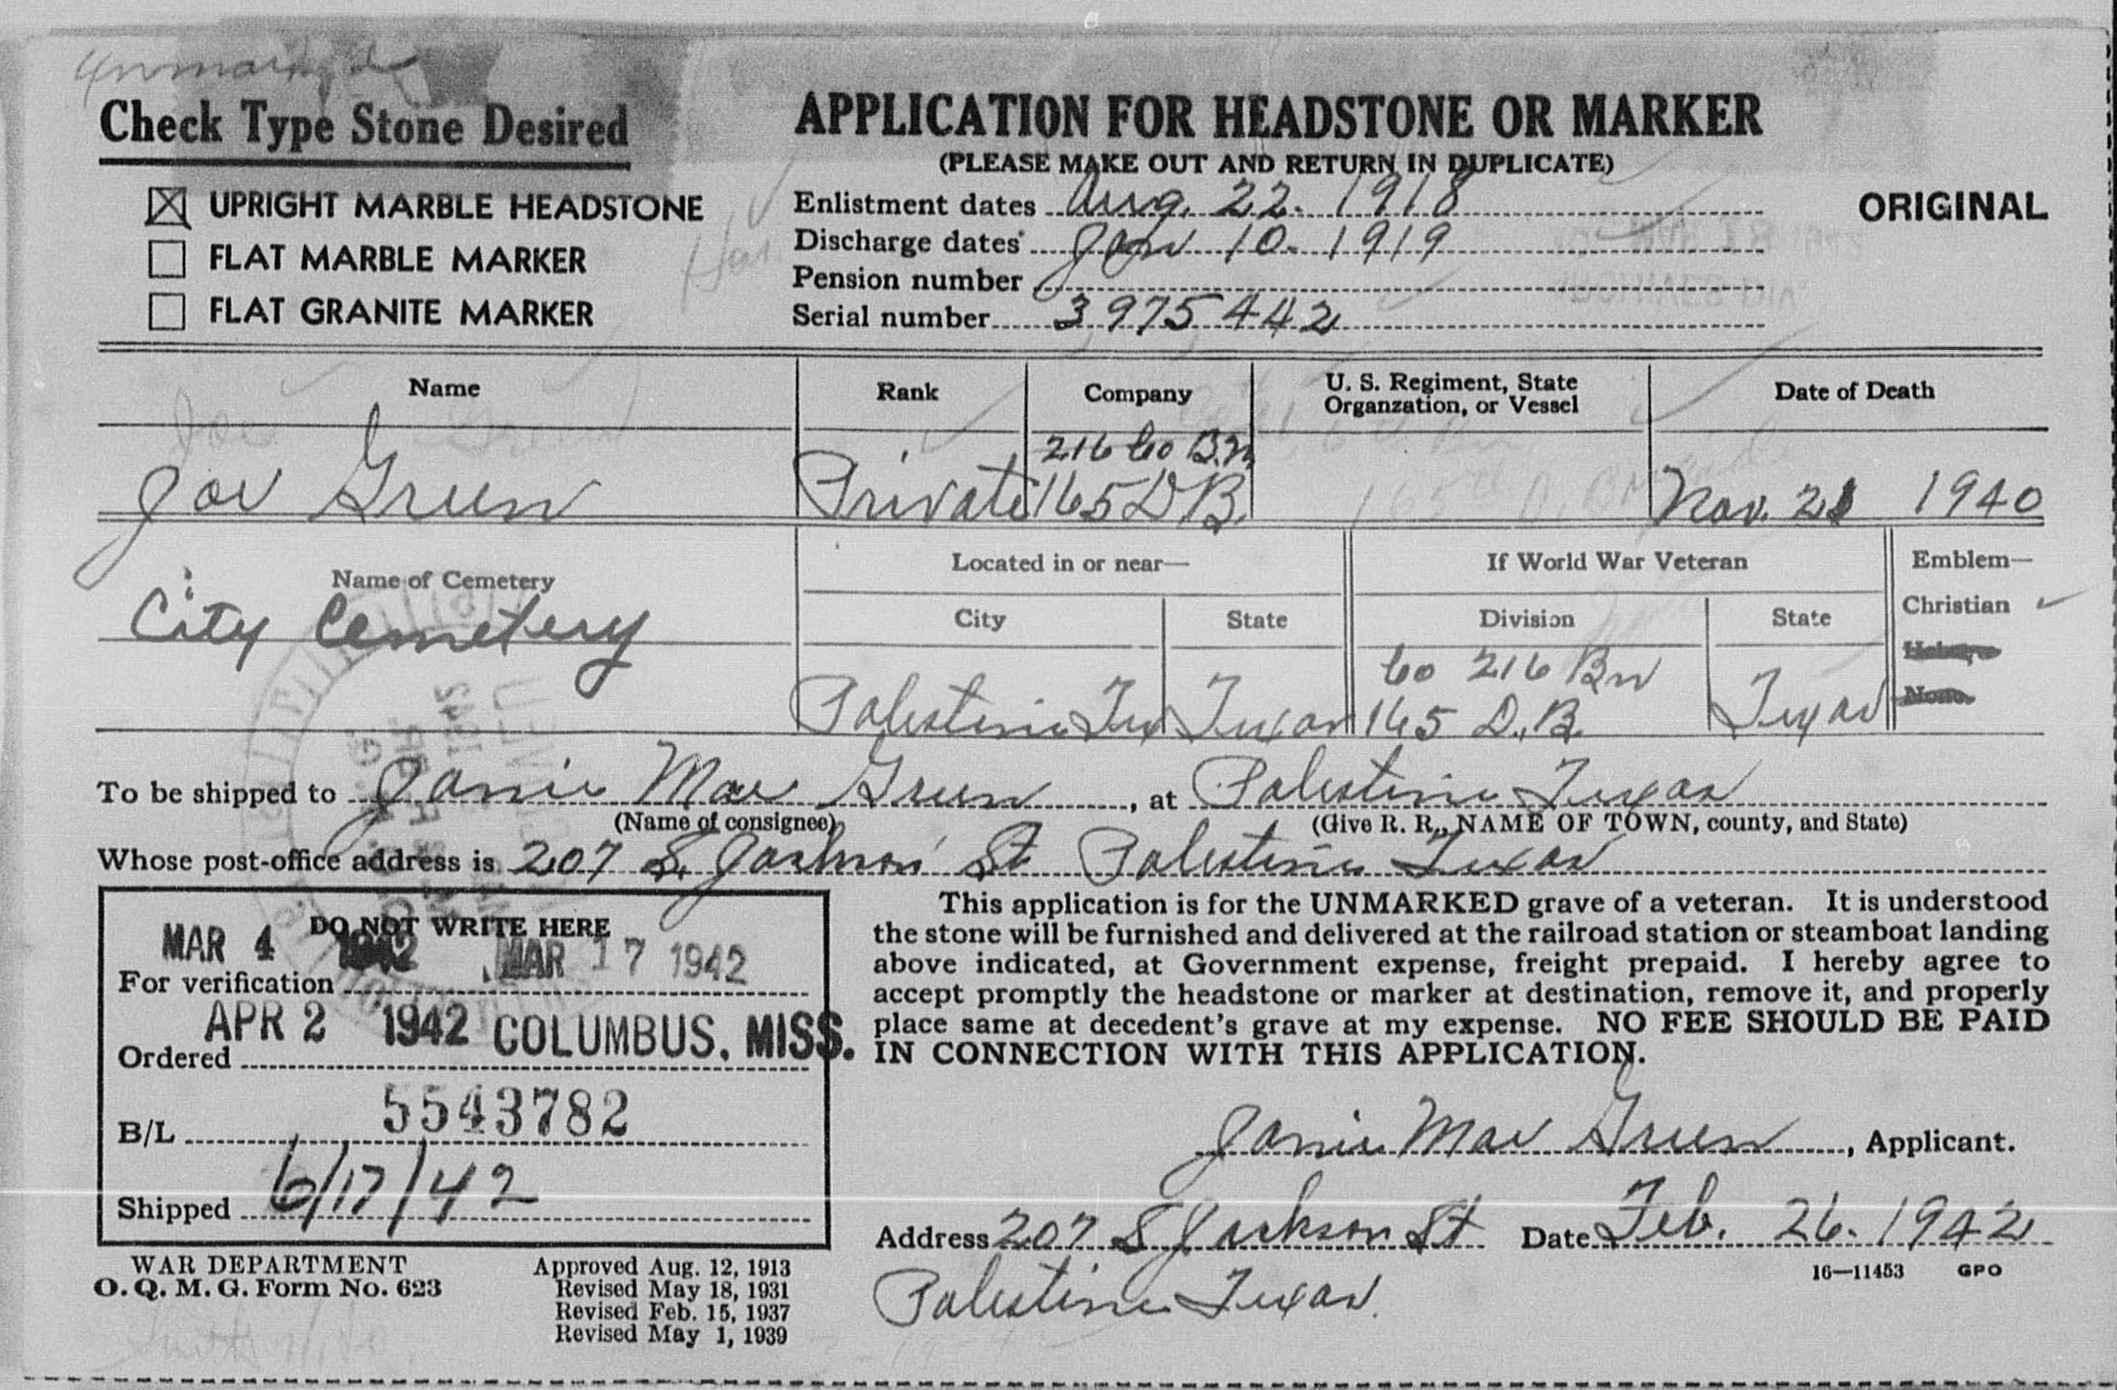 Unmarked
Check Type Stone Desired
UPRIGHT MARBLE HEADSTONE
FLAT MARBLE MARKER
FLAT GRANITE MARKER
APPLICATION FOR HEADSTONE OR MARKER
(PLEASE MAKE OUT AND RETURN IN DUPLICATE)
ORIGINAL
Enlistment dates Aug. 22. 1918
Discharge dates Jan 10. 1919
Pension number
Serial number 3975442
Name
Rank
Company
U. S. Regiment, State
Organzation, or Vessel
Date of Death
Joe Green
Joe Green
Private
216 Co Bn
165 D B.
165th D. Brigade
Nov. 21 1940
Name of Cemetery
City Cemetery
Located in or near—
City
State
Palestine Tex
Texas
If World War Veteran
Division
State
Co 216 Bn
165 D. B.
Texas
Emblem—
Christian ✓
Hebrew
None.
To be shipped to Janie Mae Green, at Palestine Texas
(Name of consignee)
(Give R. R., NAME OF TOWN, county, and State)
Whose post-office address is 207 S. Jackson St Palestine Texas
DO NOT WRITE HERE
MAR 4 1942 MAR 17 1942
For verification
APR 2 1942 COLUMBUS, MISS.
Ordered
5543782
B/L
Shipped 6/17/42
This application is for the UNMARKED grave of a veteran. It is understood
the stone will be furnished and delivered at the railroad station or steamboat landing
above indicated, at Government expense, freight prepaid. I hereby agree to
accept promptly the headstone or marker at destination, remove it, and properly
place same at decedent's grave at my expense. NO FEE SHOULD BE PAID
IN CONNECTION WITH THIS APPLICATION.
Janie Mae Green, Applicant.
Address 207 S Jackson St Date Feb. 26. 1942
Palestine Texas.
16—11453 GPO
WAR DEPARTMENT
O. Q. M. G. Form No. 623
Approved Aug. 12, 1913
Revised May 18, 1931
Revised Feb. 15, 1937
Revised May 1, 1939